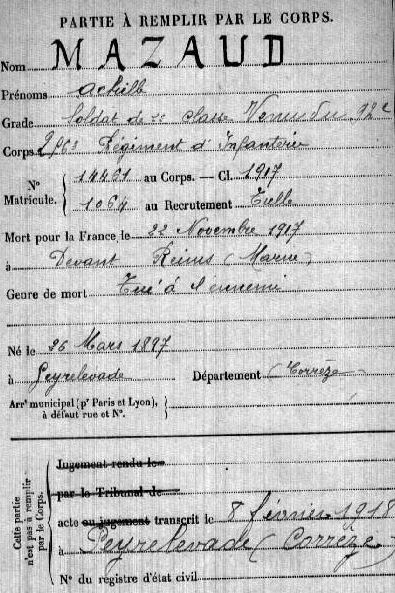 PARTIE À REMPLIR PAR LE CORPS.
Nom MAZAUD
Prénoms Achille
Grade Soldat de 2e classe Venu du 92e
Corps Régiment d'Infanterie
N° Matricule. { 14491 au Corps. — Cl. 1917
1064 au Recrutement Tulle
Mort pour la France le 22 Novembre 1917
à Devant Reims (Marne)
Genre de mort Tué à l'ennemi
Né le 26 Mars 1897
à Peyrelevade Département (Corrèze)
Arrt municipal (pr Paris et Lyon),
à défaut rue et N°.
Cette partie n'est pas à remplir par le Corps.
Jugement rendu le
par le Tribunal de
acte ou jugement transcrit le 8 février 1918
à Peyrelevade (Corrèze)
N° du registre d'état civil